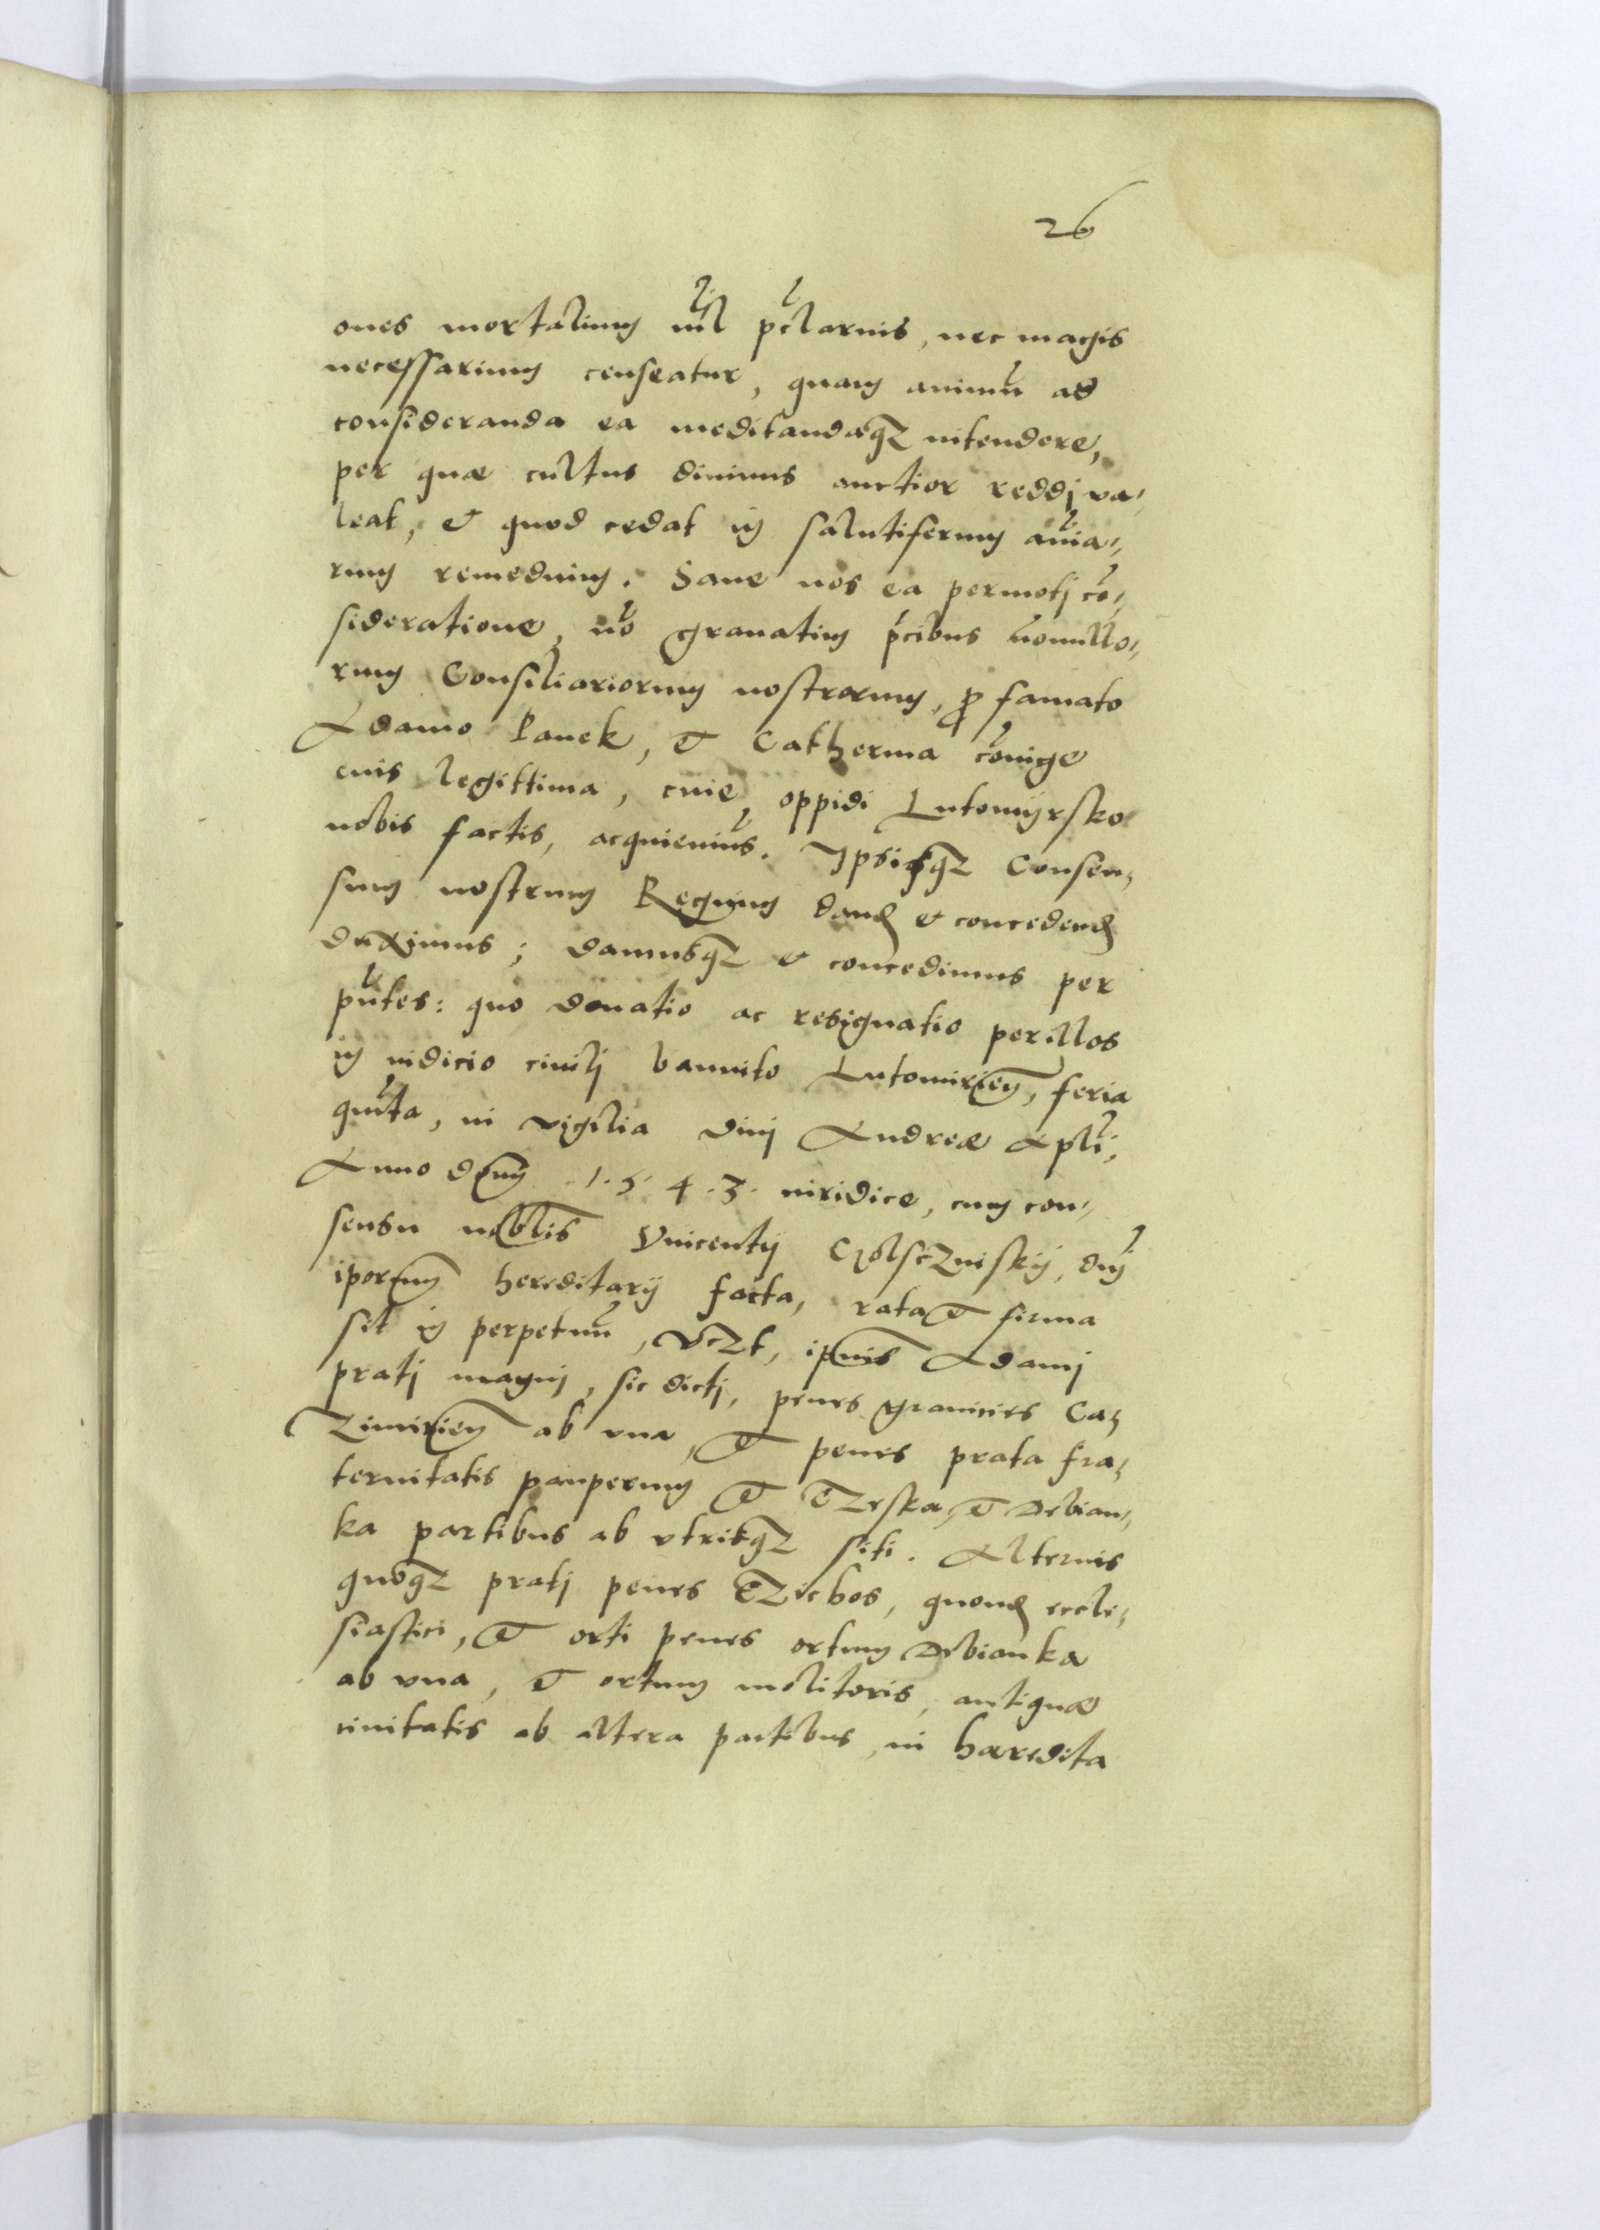 26
ones mortalium nil pclarius, nec magis
necessarium censeatur, quam animu ad
consideranda ea meditandaqz intendere,
per quæ cultus diuinus auctior reddj va,,
leat, et quod cedat in salutiferum aīa,,
rum remedium. Sane nos ea permotj co,,
sideratione, nō grauatim pcibus nonullo,,
rum Consiliariorum nostrorum, p famato
Adamo Panek, et Catherina cōiuge
eius legittima, ciue oppidi Lutomijrsko
nobis factis, acquieuimus. Ipsisqz Consen,,
sum nostrum Regium dand et concedend
duximus; damusqz et concedimus per
pntes: quo donatio ac resignatio per illos
in iudicio ciuilj bannito Lutomirien, feria
quīta, in vigilia diui Andreæ Apli,
Anno dnj .1.5.4.3. iuridice, cum con,,
sensu noblis Vincentij dnj
iporum hereditarij facta, rata et firma
sit in perpetuu, vczt, ipius Adamj
pratj magnj, sic dictj, penes granicies Ca,,
zimirien ab vna, et penes prata fra,,
ternitatis pauperum et Czeska, et Debian,,
ka partibus ab vtrisqz siti. Alterius
quoqz pratj penes quond eccle,,
siastici, et orti penes ortum Debianka
ab vna, et ortum molitoris, antiquæ
ciuitatis ab altera partibus, in hæredita